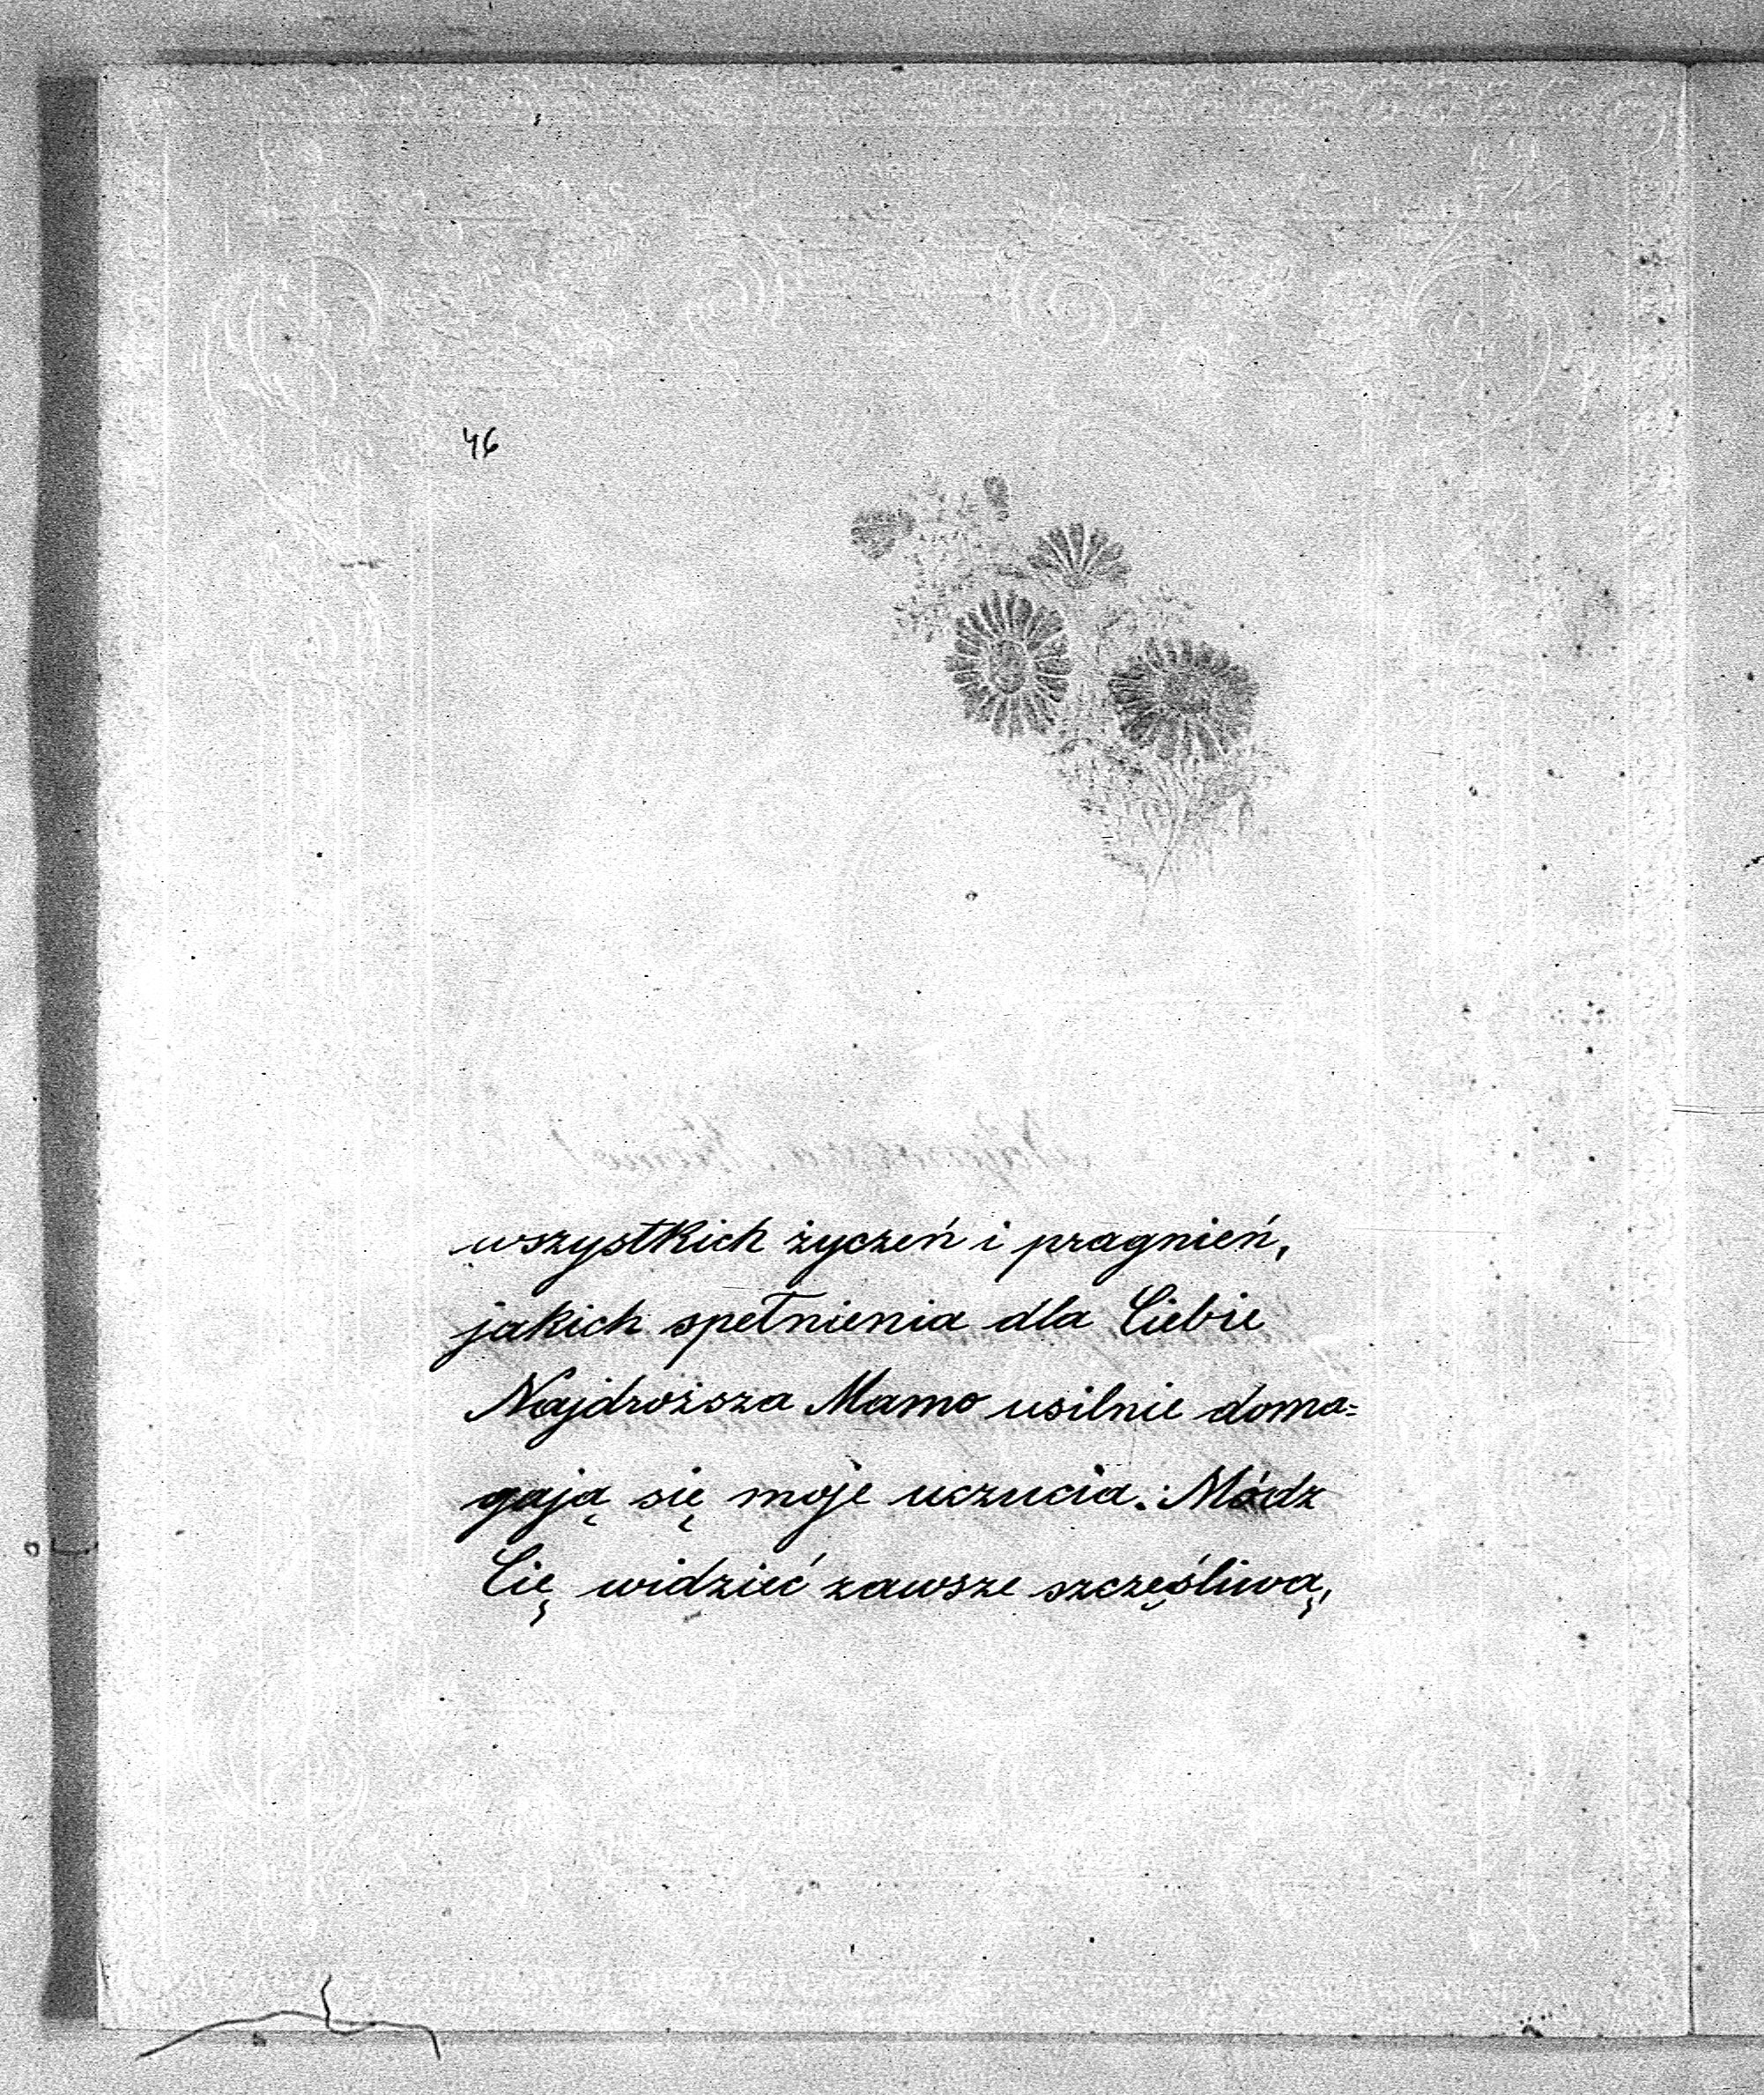 46
wszystkich życzeń i pragnień,
jakich spełnienia dla Ciebie
Najdroższa Mamo usilnie doma=
gają się moje uczucia. Módz
Cię widzieć zawsze szczęśliwą,